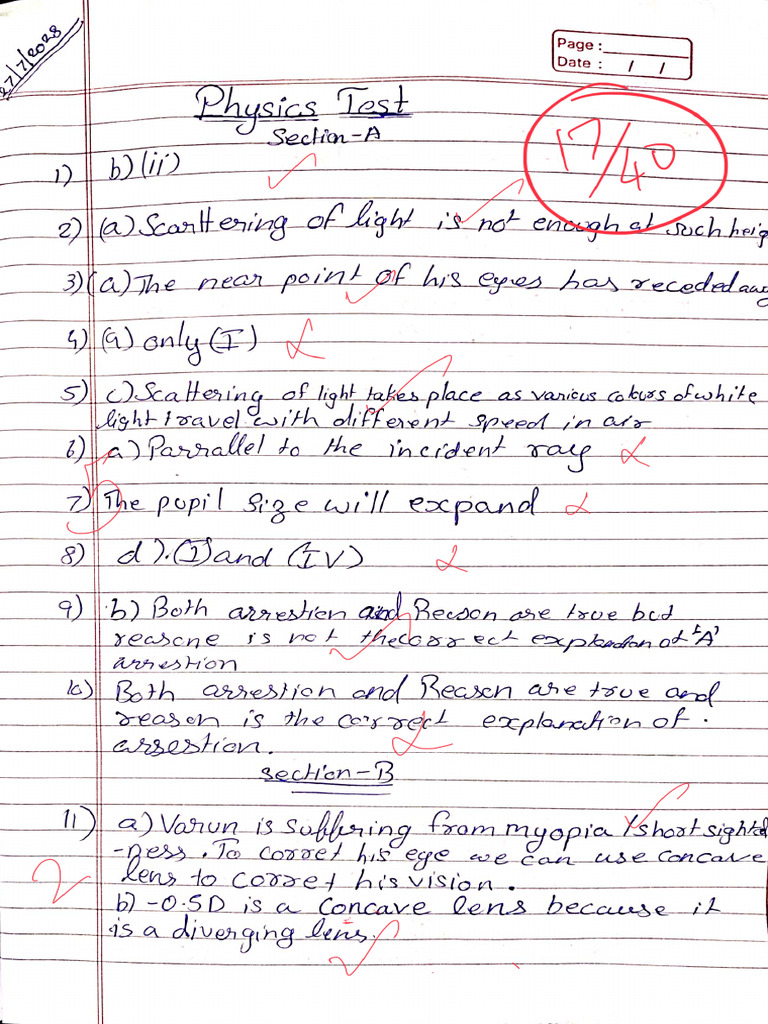 27/7/2028
Page :
Date : / /
Physics Test
Section-A
17/40
1) b) (ii)
2) (a) Scarttering of light is not enough at such heig
3) (a) The near point of his eyes has receded away
4) (a) only (I)
5) c) Scattering of light takes place as various colours of white
light travel with different speed in air
6) a) Parrallel to the incident ray
7) The pupil size will expand
8) d). (I) and (IV)
9) b) Both arrestion and Reason are true but
reasone is not the correct explandion of 'A'
arrestion
10) Both arrestion and Reason are true and
reason is the correct explanation of .
arsestion.
section-B
11) a) Varun is suffering from myopia / short sighted
-ness. To corret his eye we can use concave
2 lens to corret his vision.
b) -0.5D is a concave lens because it
is a diverging lens.